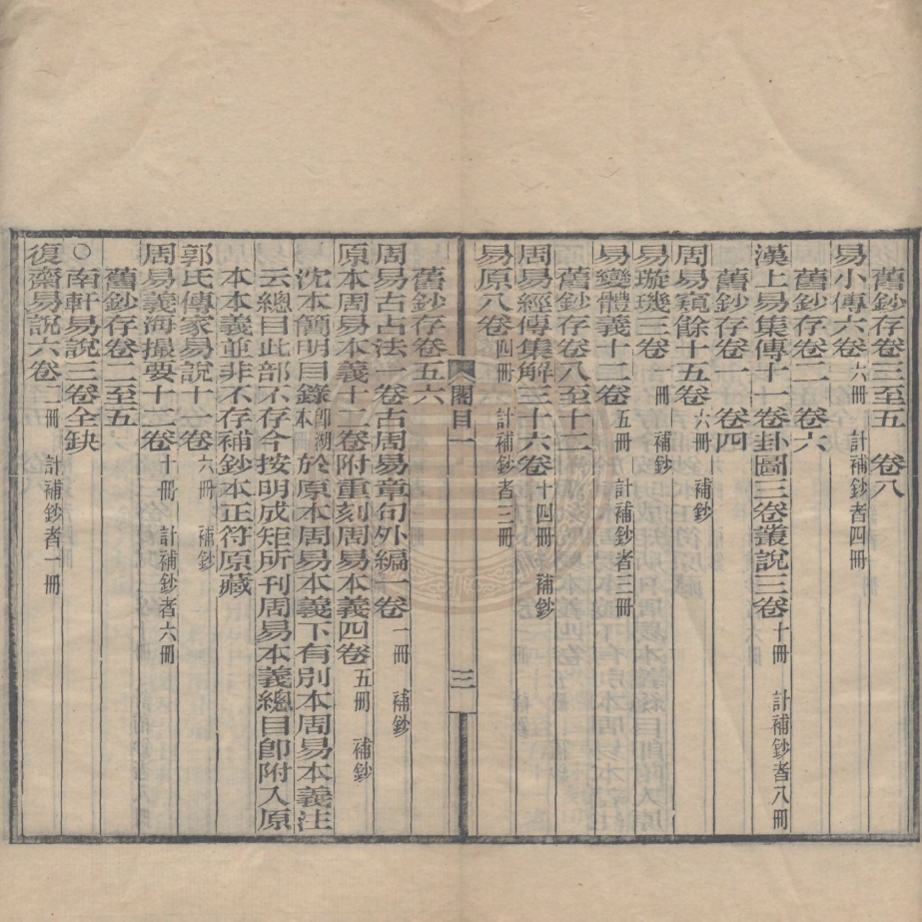 舊鈔存卷三至五　卷八
易小傳六卷 六冊　計補鈔者四冊
舊鈔存卷二　卷六
漢上易集傳十一卷卦圖三卷叢說三卷 十冊　計補鈔者八冊
舊鈔存卷一　卷四
周易窺餘十五卷 六冊　補鈔
易璇璣三卷 一冊　補鈔
易變體義十二卷 五冊　計補鈔者三冊
舊鈔存卷八至十二
周易經傳集解三十六卷 十四冊　補鈔
易原八卷 四冊　計補鈔者三冊
閣目一
三
舊鈔存卷五六
周易古占法一卷古周易章句外編一卷 一冊　補鈔
原本周易本義十二卷附重刻周易本義四卷 五冊　補鈔
沈本簡明目錄 卽湖本 於原本周易本義下有別本周易本義注
云總目此部不存今按明成矩所刊周易本義總目卽附入原
本本義並非不存補鈔本正符原藏
郭氏傳家易說十一卷 六冊　補鈔
周易義海撮要十二卷 十冊　計補鈔者六冊
舊鈔存卷二至五
○南軒易說三卷全缺
復齋易說六卷 二冊　計補鈔者一冊